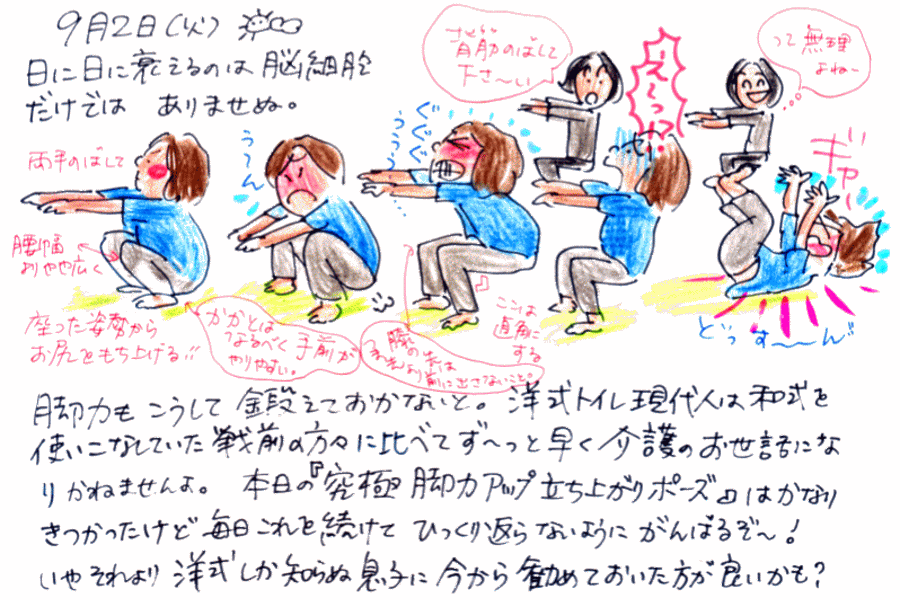 9月2日(火)
日に日に衰えるのは脳細胞
だけでは ありませぬ。
背筋のばして
下さ〜い
え〜っ!?
って無理
よね〜
両手のばして
う〜ん
ぐぐぐ
ううう
ギャー
腰幅
よりやや広く
座った姿勢から
お尻をもち上げる!!
かかとは
なるべく手前が
やりやすい。
膝の先は
つま先より前に出さないこと。
ここは
直角にする
どっす〜〜ん
脚力もこうして鍛えておかないと。洋式トイレ現代人は和式を
使いこなしていた戦前の方々に比べてず〜っと早く介護のお世話にな
りかねませんよ。 本日の『究極脚力アップ立ち上がりポーズ』はかなり
きつかったけど毎日これを続けて ひっくり返らないようにがんばるぞ〜!
いやそれより洋式しか知らぬ息子に今から勧めておいた方が良いかも?